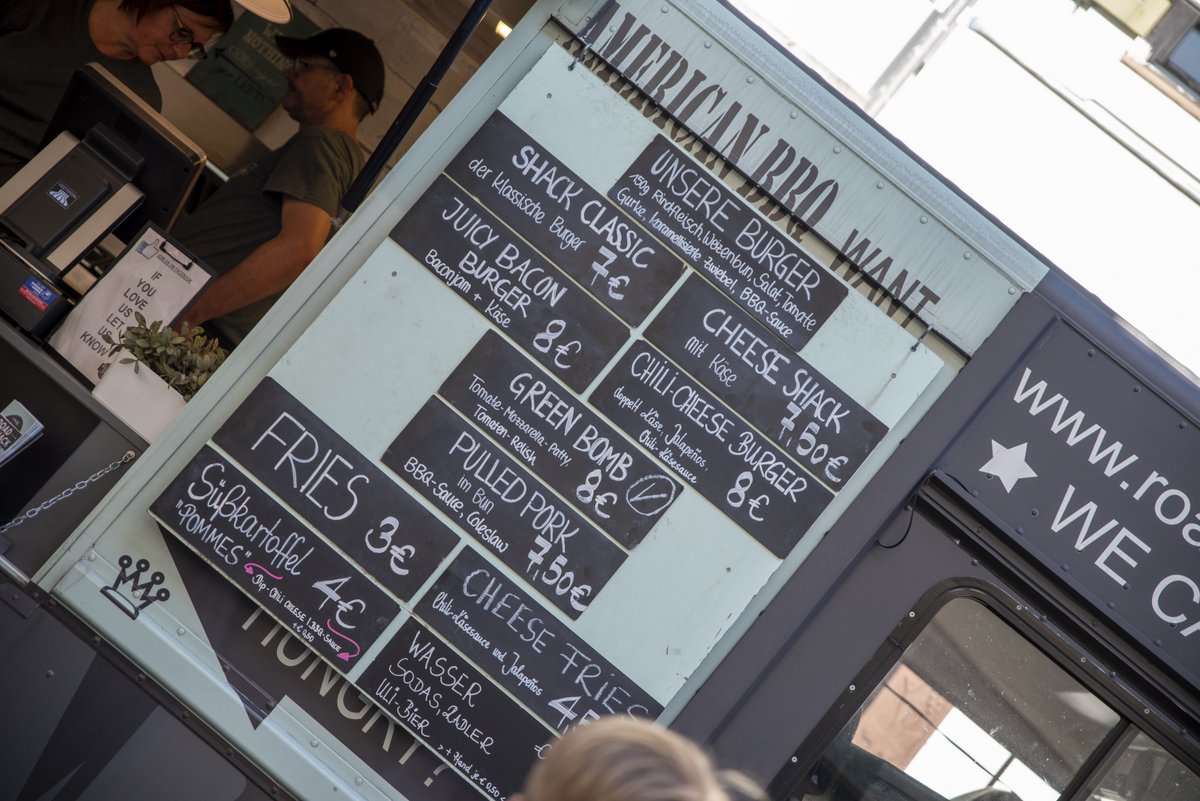 AMERICAN BBQ
WANT
UNSERE BURGER
150g Rindfleisch, Weizenbun, Salat, Tomate
Gurke, Karamellisierte Zwiebel, BBQ-Sauce
SHACK CLASSIC
der klassische Burger
7€
JUICY BACON
BURGER
Baconjam + Käse
8€
CHEESE SHACK
mit Käse
7,50€
CHILI-CHEESE BURGER
doppelt Käse, Jalapeños,
Chili-Käsesauce
8€
GREEN BOMB
Tomate-Mozzarella-Patty,
Tomaten-Relish
8€
PULLED PORK
im Bun
BBQ-Sauce, Coleslaw
7,50€
FRIES
3€
Süßkartoffel
"POMMES"
4€
Dip-Chili CHEESE / BBQ-SAUCE
+ € 0,50
CHEESE FRIES
Chili-Käsesauce und Jalapeños
WASSER
SODAS, RADLER
ULI-BIER
> + Pfand je € 0,50
HUNGRY?
IF YOU
LOVE
US LET
US
KNOW
NOTHING
LEFT
www.roa
WE CA